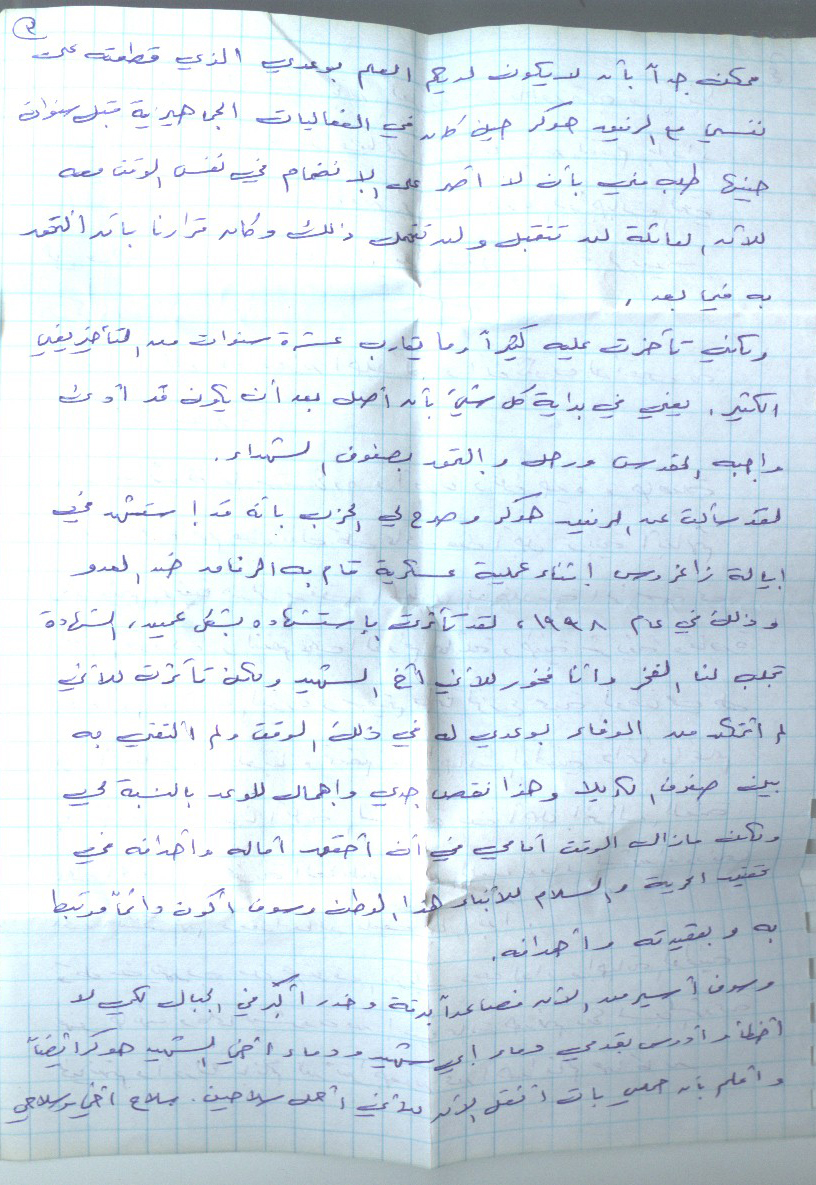 ٣
ممكن جداً بأن لا يكون لديكم العلم بوعدي الذي قطعته على
نفسي مع الرفيق هوكر حين كان في الفعاليات الجماهيرية قبل سنوات
حينها طلب مني بأن لا أصر على الإنضمام في نفس الوقت معه
للأن العائلة لن تتقبل ولن تتحمل ذلك وكان قرارنا بأن ألتحق
به في بعد .
ولكني تأخرت عليه كثيراً وما يقارب عشرة سنوات من التأخير يعني
الكثير . يعني في بداية كل شيئ بأن أصل بعد أن يكون قد أدى
واجبه المقدس ورحل و إلتحق بصفوف الشهداء .
لقد سألت عن الرفيق هوكر وصرح لي الحزب بأنه قد إستشهد في
إيالة زاغروس إثناء عملية عسكرية قام به الرفاق ضد العدو
وذلك في عام ١٩٩٨ ، لقد تأثرت بإستشهاده بشكل عميق ، الشهادة
تجلب لنا الفخر وأنا فخور للأني أخ الشهيد ولكن تأثرت للأني
لم أتمكن من الوفاء بوعدي له في ذلك الوقت ولم ألتقي به
بين صفوف الكريلا وهذا نقص جدي وإهمال للوعد بالنسبة لي
ولكن مازال الوقت أمامي في أن أحقق أماله وأهدافه في
تحقيق الحرية والسلام للأبناء هذا الوطن وسوف أكون دائماً مرتبطا
به و بعقيدته وأهدافه .
وسوف أسير من الأن فصاعداً بدقة وحذر أكبر في الجبال لكي لا
أخطأ وأدوس بقدمي دماء إي شهيد ودماء أخي الشهيد هوكر أيضاً
وأعلم بأن حملي بات أثقل الأن للأني أحمل سلاحين . سلاح أخي وسلاحي